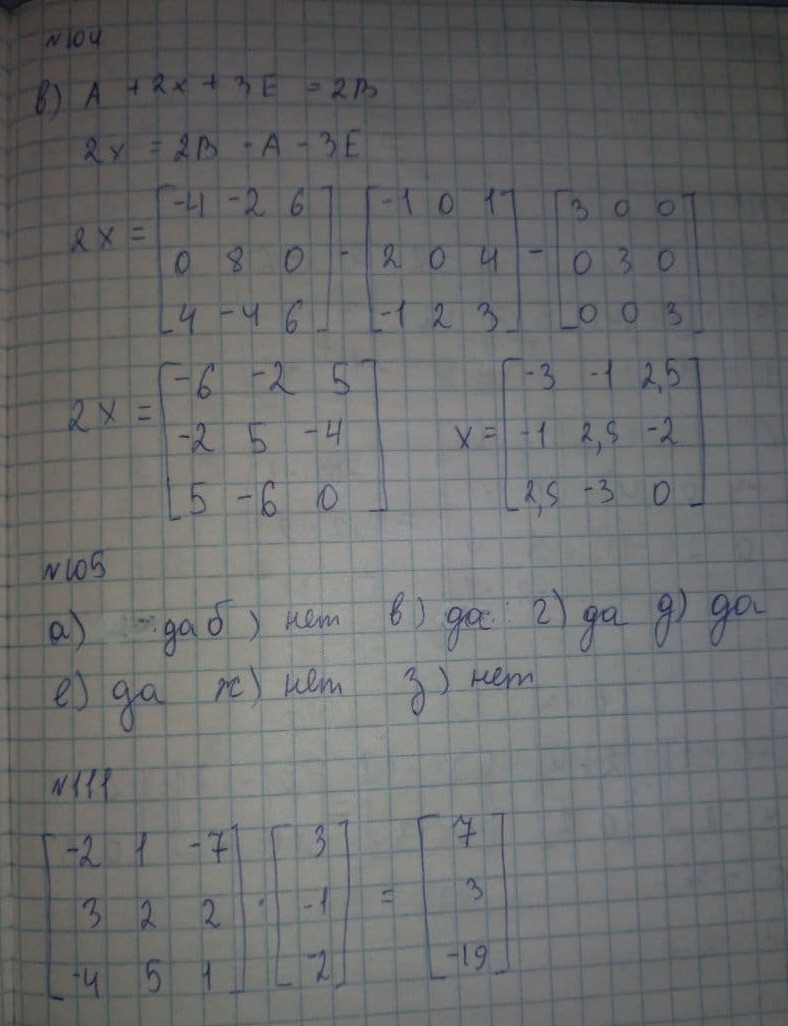 №104
в) A + 2x + 3E = 2B
2x = 2B - A - 3E
2x = [-4 -2 6; 0 8 0; 4 -4 6] - [-1 0 1; 2 0 4; -1 2 3] - [3 0 0; 0 3 0; 0 0 3]
2x = [-6 -2 5; -2 5 -4; 5 -6 0] x = [-3 -1 2,5; -1 2,5 -2; 2,5 -3 0]
№105
а) да б) нет в) да г) да д) да
е) да ж) нет з) нет
№111
[-2 1 -7; 3 2 2; -4 5 1] · [3; -1; -2] = [7; 3; -19]